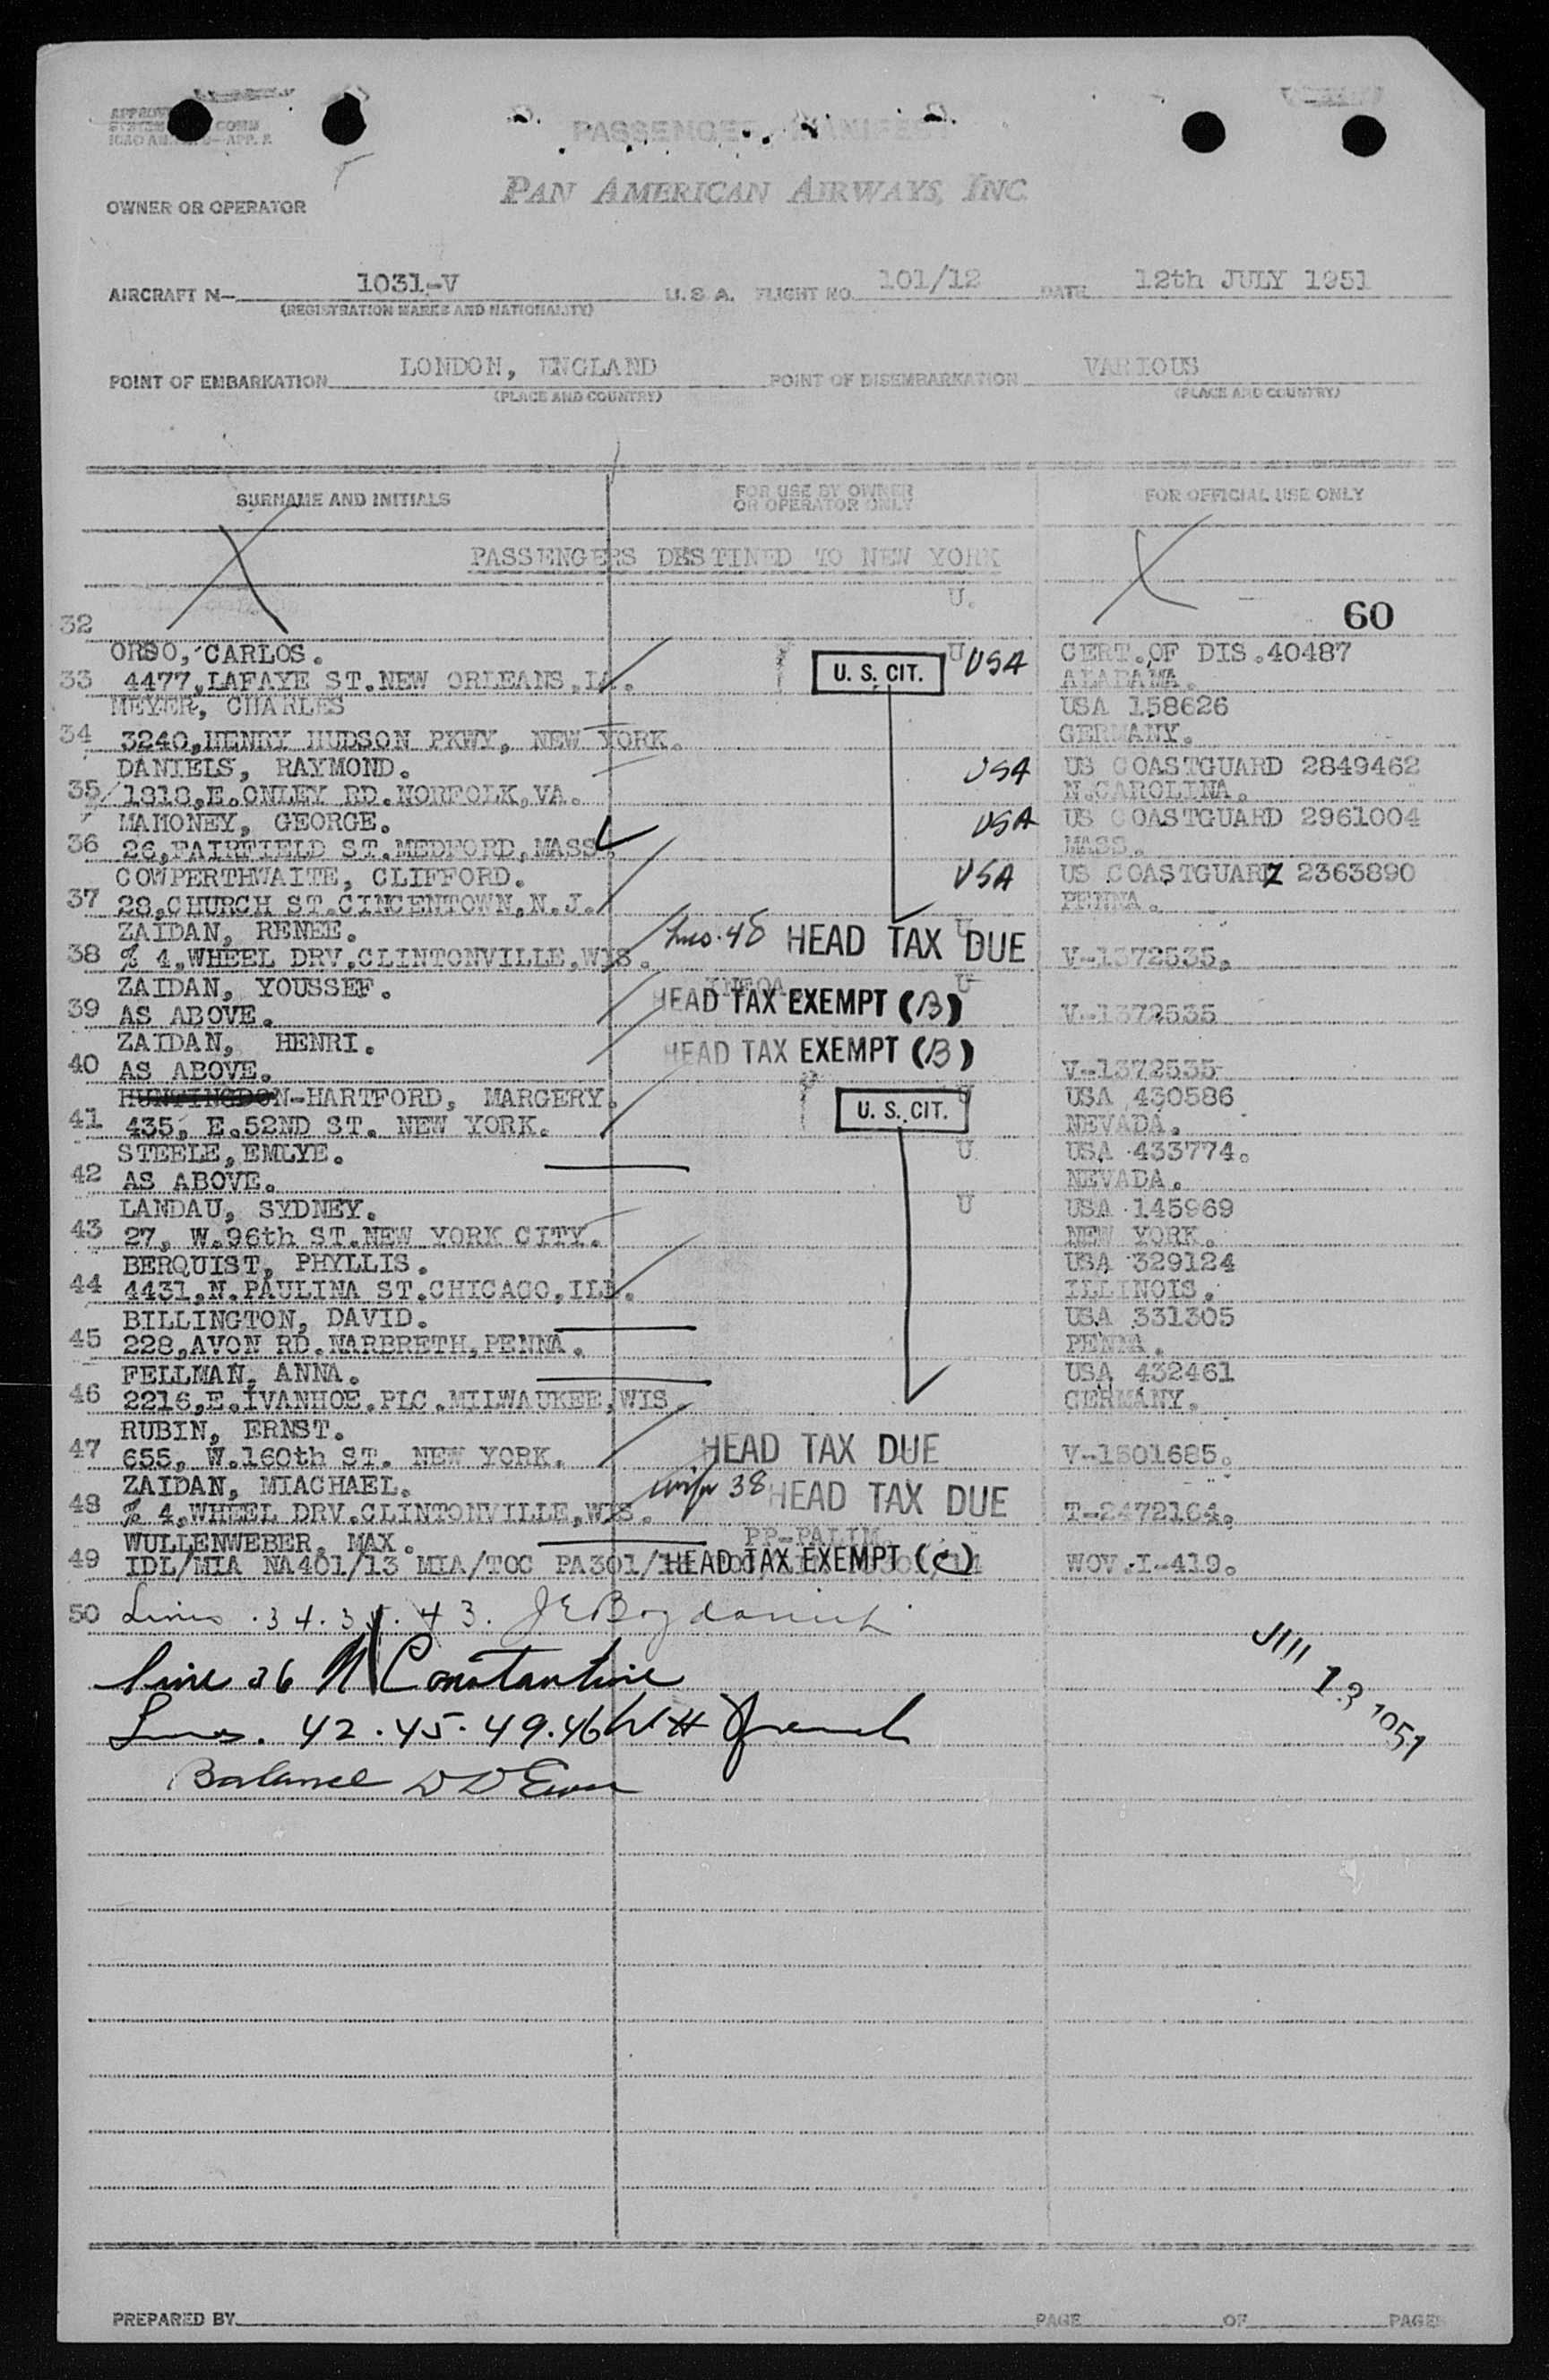 PASSENGER MANIFEST
PAN AMERICAN AIRWAYS, INC.
OWNER OR OPERATOR
AIRCRAFT N- 1031-V U. S. A. FLIGHT NO. 101/12 DATE 12th JULY 1951
(REGISTRATION MARKS AND NATIONALITY)
POINT OF EMBARKATION LONDON, ENGLAND POINT OF DISEMBARKATION VARIOUS
(PLACE AND COUNTRY) (PLACE AND COUNTRY)
SURNAME AND INITIALS FOR USE BY OWNER OR OPERATOR ONLY FOR OFFICIAL USE ONLY
PASSENGERS DESTINED TO NEW YORK
U.
32 60
ORSO, CARLOS. U USA CERT.OF DIS.40487
33 4477,LAFAYE ST.NEW ORLEANS,LA. U. S. CIT. ALABAMA.
MEYER, CHARLES USA 158626
34 3240,HENRY HUDSON PKWY, NEW YORK. GERMANY.
DANIELS, RAYMOND. USA US COASTGUARD 2849462
35 1818,E.ONLEY RD.NORFOLK,VA. N.CAROLINA.
MAHONEY, GEORGE. USA US COASTGUARD 2961004
36 26,FAIRFIELD ST.MEDFORD,MASS. MASS.
COWPERTHWAITE, CLIFFORD. USA US COASTGUARD Z 2363890
37 28,CHURCH ST.CINCENTOWN,N.J. PENNA.
ZAIDAN, RENEE. U
38 % 4,WHEEL DRV.CLINTONVILLE,WIS. 48 HEAD TAX DUE V-1372535.
ZAIDAN, YOUSSEF. U
39 AS ABOVE. HEAD TAX EXEMPT (B) V-1372535
ZAIDAN, HENRI. HEAD TAX EXEMPT (B)
40 AS ABOVE. V-1372535
HUNTINGDON-HARTFORD, MARGERY. U USA 430586
41 435, E.52ND ST. NEW YORK. U. S. CIT. NEVADA.
STEELE,EMLYE. U USA 433774.
42 AS ABOVE. NEVADA.
LANDAU, SYDNEY. U USA 145969
43 27, W.96th ST.NEW YORK CITY. NEW YORK.
BERQUIST, PHYLLIS. USA 329124
44 4431,N.PAULINA ST.CHICAGO,ILL. ILLINOIS.
BILLINGTON, DAVID. USA 331305
45 228,AVON RD.NARBRETH,PENNA. PENNA.
FELLMAN, ANNA. USA 432461
46 2216,E.IVANHOE.PLC.MILWAUKEE,WIS GERMANY.
RUBIN, ERNST.
47 655, W.160th ST. NEW YORK. HEAD TAX DUE V-1501685.
ZAIDAN, MIACHAEL. wife 38 HEAD TAX DUE
48 % 4,WHEEL DRV.CLINTONVILLE,WIS. T-2472164.
WULLENWEBER, MAX. PP-PALIM
49 IDL/MIA NA401/13 MIA/TOC PA301/ HEAD TAX EXEMPT (C) WOV.I-419.
50 Lines .34.35.43. J E Bogdanich
JUL 13 1951
line 36 N Constantine
Lines. 42.45.49.46 W H French
Balance D D
PREPARED BY PAGE OF PAGES